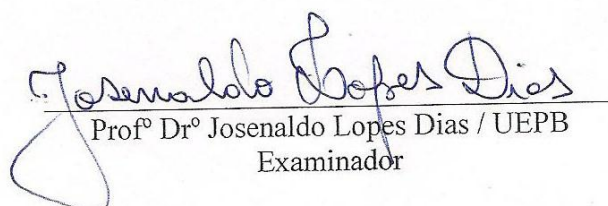 Josenaldo Lopes Dias
Profº Drº Josenaldo Lopes Dias / UEPB
Examinador